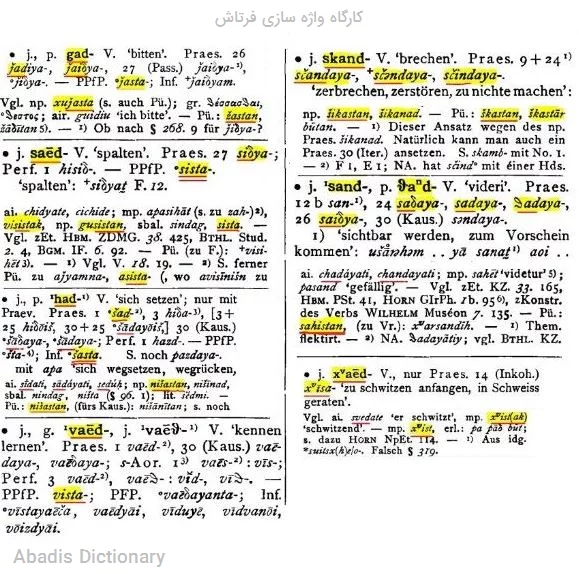 کارگاه واژه سازی فرتاش
• j., p. gad- V. 'bitten'. Praes. 26
jadiya-, jaiδya-, 27 (Pass.) jaiδya-¹),
°jiδya-. — PPfP. °jasta-; Inf. ⁺jaiδyam.
Vgl. np. xujasta (s. auch Pü.); gr. θέσσασθαι,
°θεστος; air. guidiu 'ich bitte'. — Pü.: žastan,
žāδītan 5). — ¹) Ob nach § 268. 9 für jiδya-?
• j. saēd- V. 'spalten'. Praes. 27 siδya-;
Perf. 1 hisiδ-. — PPfP. °sista-.
'spalten': ⁺siδyat̰ F. 12.
ai. chidyate, cichide; mp. apasihāt (s. zu zah-)²),
visistak, np. gusistan, sbal. sindag, sista. —
Vgl. zEt. HBM. ZDMG. 38. 425, BTHL. Stud.
2. 4, BGM. IF. 6. 92. — Pü. (zu F.): ⁺visi-
hēt 3). — ¹) Vgl. V. 18. 19. — ²) S. ferner
Pü. zu ajyamna-, asista- (, wo avisīnišn zu
• j., p. ¹had-¹) V. 'sich setzen'; nur mit
Praev. Praes. 1 °šad-²), 3 hiδa-³), [3+
25 hiδōiš, 30+25 °šādayōiš,] 30 (Kaus.)
°šāδaya-, °šādaya-; Perf. 1 hazd-. — PPfP.
°šta-⁴); Inf. °šasta. S. noch pazdaya-.
mit apa 'sich wegsetzen, wegrücken,
ai. sīdati, sādáyati, sedúḥ; np. nišastan, nišīnad,
sbal. nindag, ništa (§ 96. 1); lit. sėdmi. —
Pü.: nišastan, (fürs Kaus.): nišānītan; s. noch
• j., g. ¹vaēd-, j. ¹vaēϑ-¹) V. 'kennen
lernen'. Praes. 1 vaēd-²), 30 (Kaus.) vaē-
daya-, vaēδaya-; s-Aor. 1³) vaēs-²) : vīs-;
Perf. 3 vaēd-²), vaēϑ- : vīd-, vīϑ-. —
PPfP. vista-; PFP. °vaēδayanta-; Inf.
°vīstayaēča, vaēdyāi, vīduyē, vīdvanōi,
vōizdyāi.
• j. skand- V. 'brechen'. Praes. 9 + 24¹)
sčandaya-, ⁺sčəndaya-, sčindaya-.
'zerbrechen, zerstören, zu nichte machen':
np. šikastan, šikanad. — Pü.: škastan, škastār
būtan. — ¹) Dieser Ansatz wegen des np.
Praes. šikanad. Natürlich kann man auch ein
Praes. 30 (Iter.) ansetzen. S. skamb- mit No. 1.
— ²) F 1, E 1; NA. hat sānd° mit éiner Hds.
• j. ¹sand-, p. ϑaⁿd- V. 'videri'. Praes.
12 b san-¹), 24 saδaya-, sadaya-, ϑadaya-,
26 saiδya-, 30 (Kaus.) səndaya-.
1) 'sichtbar werden, zum Vorschein
kommen': ušā̊ŋhəm . . yā sanat̰²) aoi . .
ai. chadáyati, chandayati; mp. sahēt 'videtur' 5);
pasand 'gefällig'. — Vgl. zEt. KZ. 33. 165,
HBM. PSt. 41, HORN GIrPh. 1b. 95 6), zKonstr.
des Verbs WILHELM Muséon 7. 135. — Pü.:
sahistan, (zu Vr.): xᵛarsandīh. — ¹) Them.
flektirt. — ²) NA. ϑadayātiy; vgl. BTHL. KZ.
• j. xᵛaēd- V., nur Praes. 14 (Inkoh.)
xᵛīsa- 'zu schwitzen anfangen, in Schweiss
geraten'.
Vgl. ai. svedate 'er schwitzt', mp. xᵛist(ak)
'schwitzend'. — mp. xᵛist, erl.: pa pāδ būt;
s. dazu HORN NpEt. 114. — ¹) Aus idg.
*suitsx(h)e/o-. Falsch § 319.
Abadis Dictionary